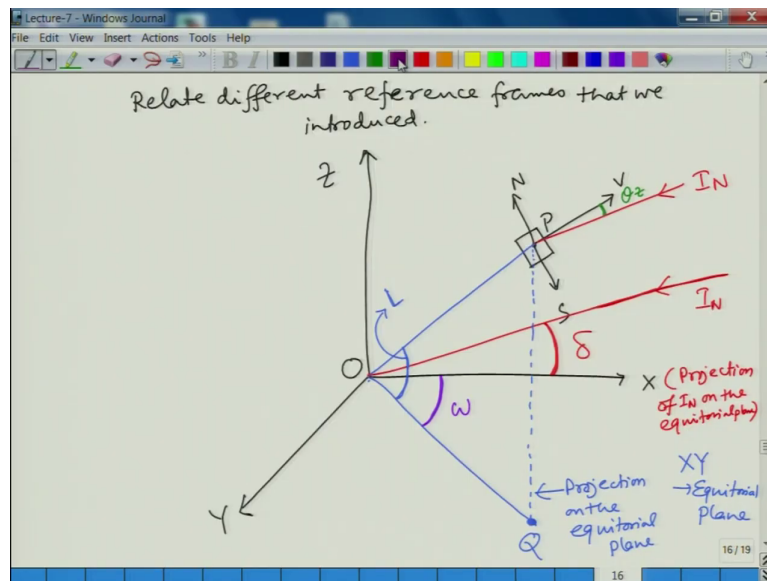 Lecture-7 - Windows Journal
File Edit View Insert Actions Tools Help
B I
Relate different reference frames that we
introduced.
Z
N
V
θz
IN
P
IN
L
S
δ
O
X (Projection
of IN on the
equitorial plane)
ω
XY
→ Equitorial
Plane
← Projection
on the
equitorial
plane
Y
Q
16/19
16